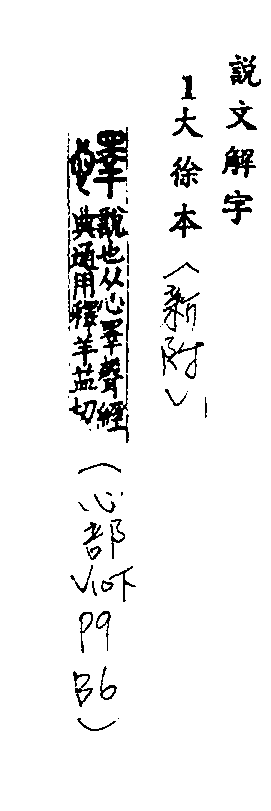 説文解字
1大徐本（新附）
懌 說也从心睪聲經
典通用釋羊益切
（心部
V10下
P9
B6）